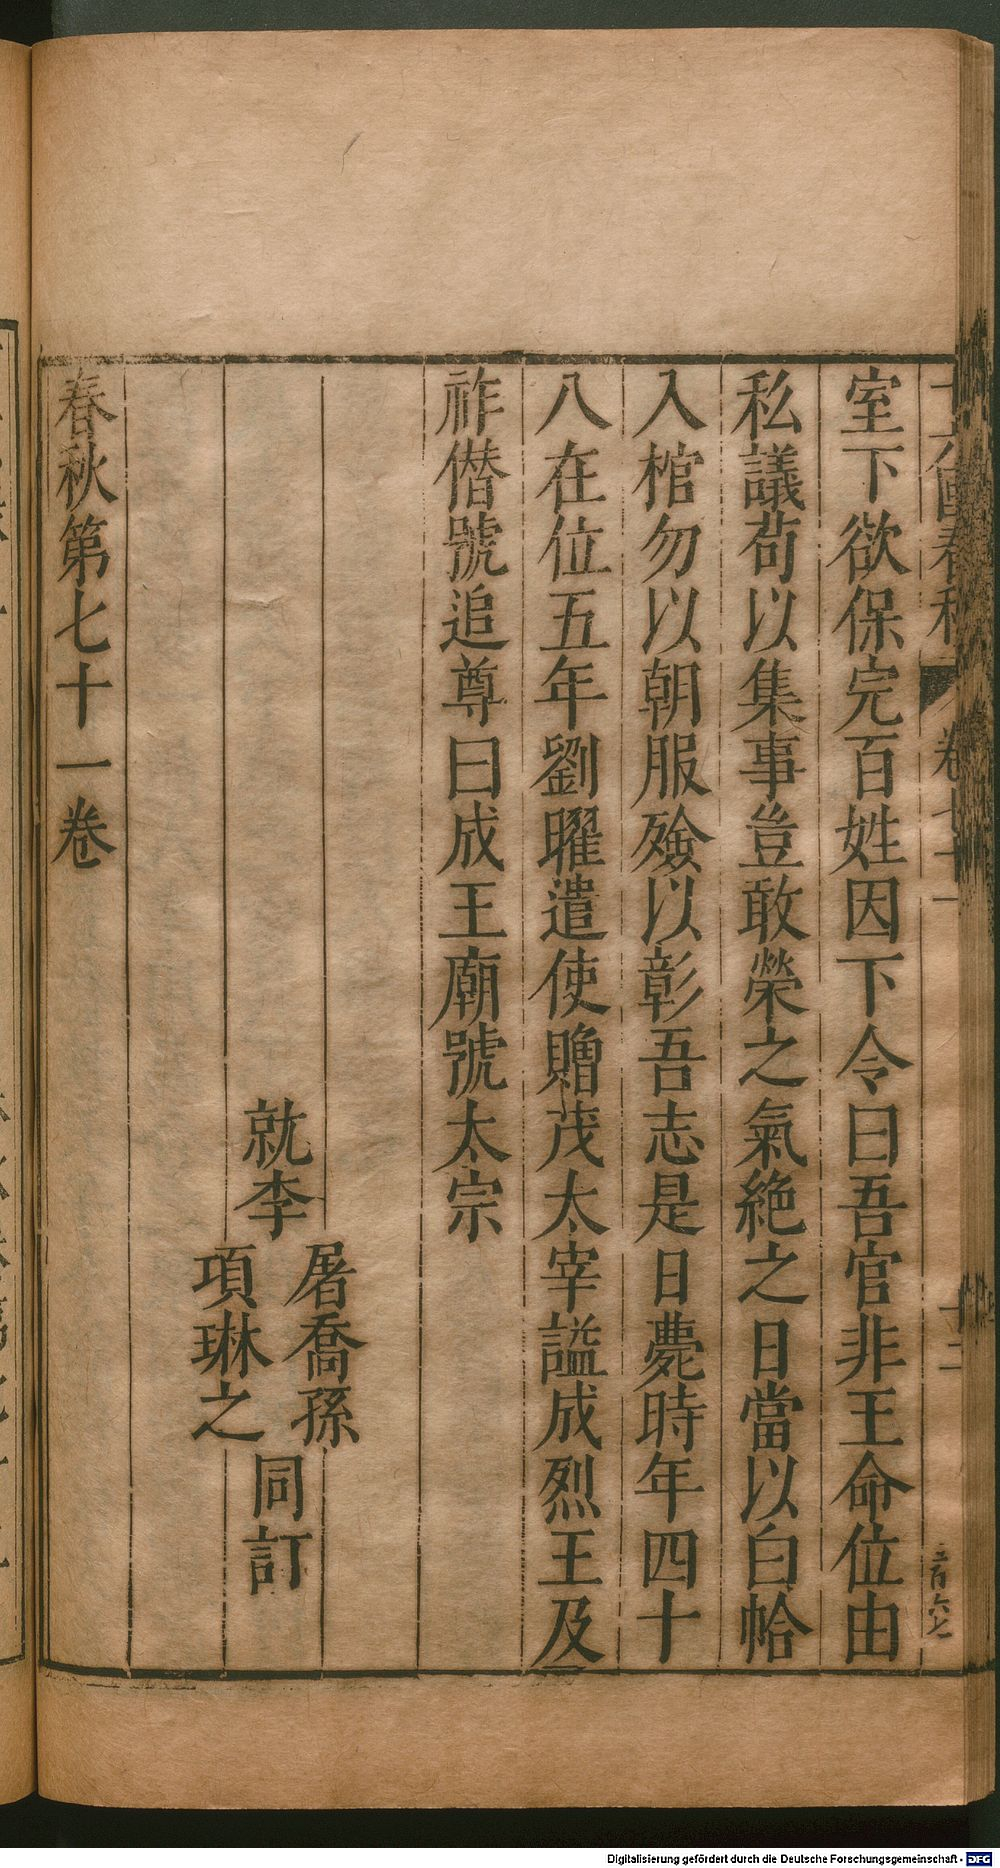 室下欲保完百姓因下令曰吾官非王命位由
私議苟以集事豈敢榮之氣絶之日當以白帢
入棺勿以朝服殮以彰吾志是日薨時年四十
八在位五年劉曜遣使贈茂太宰謚成烈王及
祚僣號追尊曰成王廟號太宗
屠喬孫
就李
項琳之
同訂
春秋第七十一卷
Digitalisierung gefördert durch die Deutsche Forschungsgemeinschaft - DFG